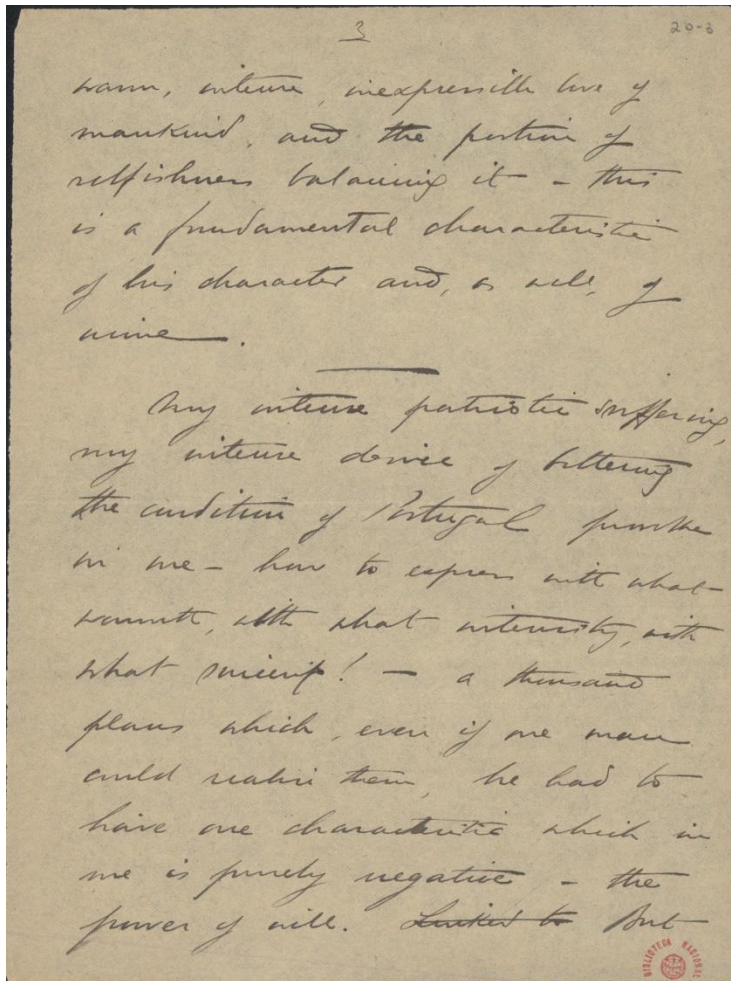 3
20-3
warm, intense, inexpressible love of
mankind, and the portion of
selfishness balancing it — this
is a fundamental characteristic
of his character and, as well, of
mine.
My intense patriotic suffering,
my intense desire of bettering
the condition of Portugal provoke
in me — how to express with what
warmth, with what intensity, with
what sincerity! — a thousand
plans which, even if one man
could realise them, he had to
have one characteristic which in
me is purely negative — the
power of will. Linked to But
BIBLIOTECA NACIONAL